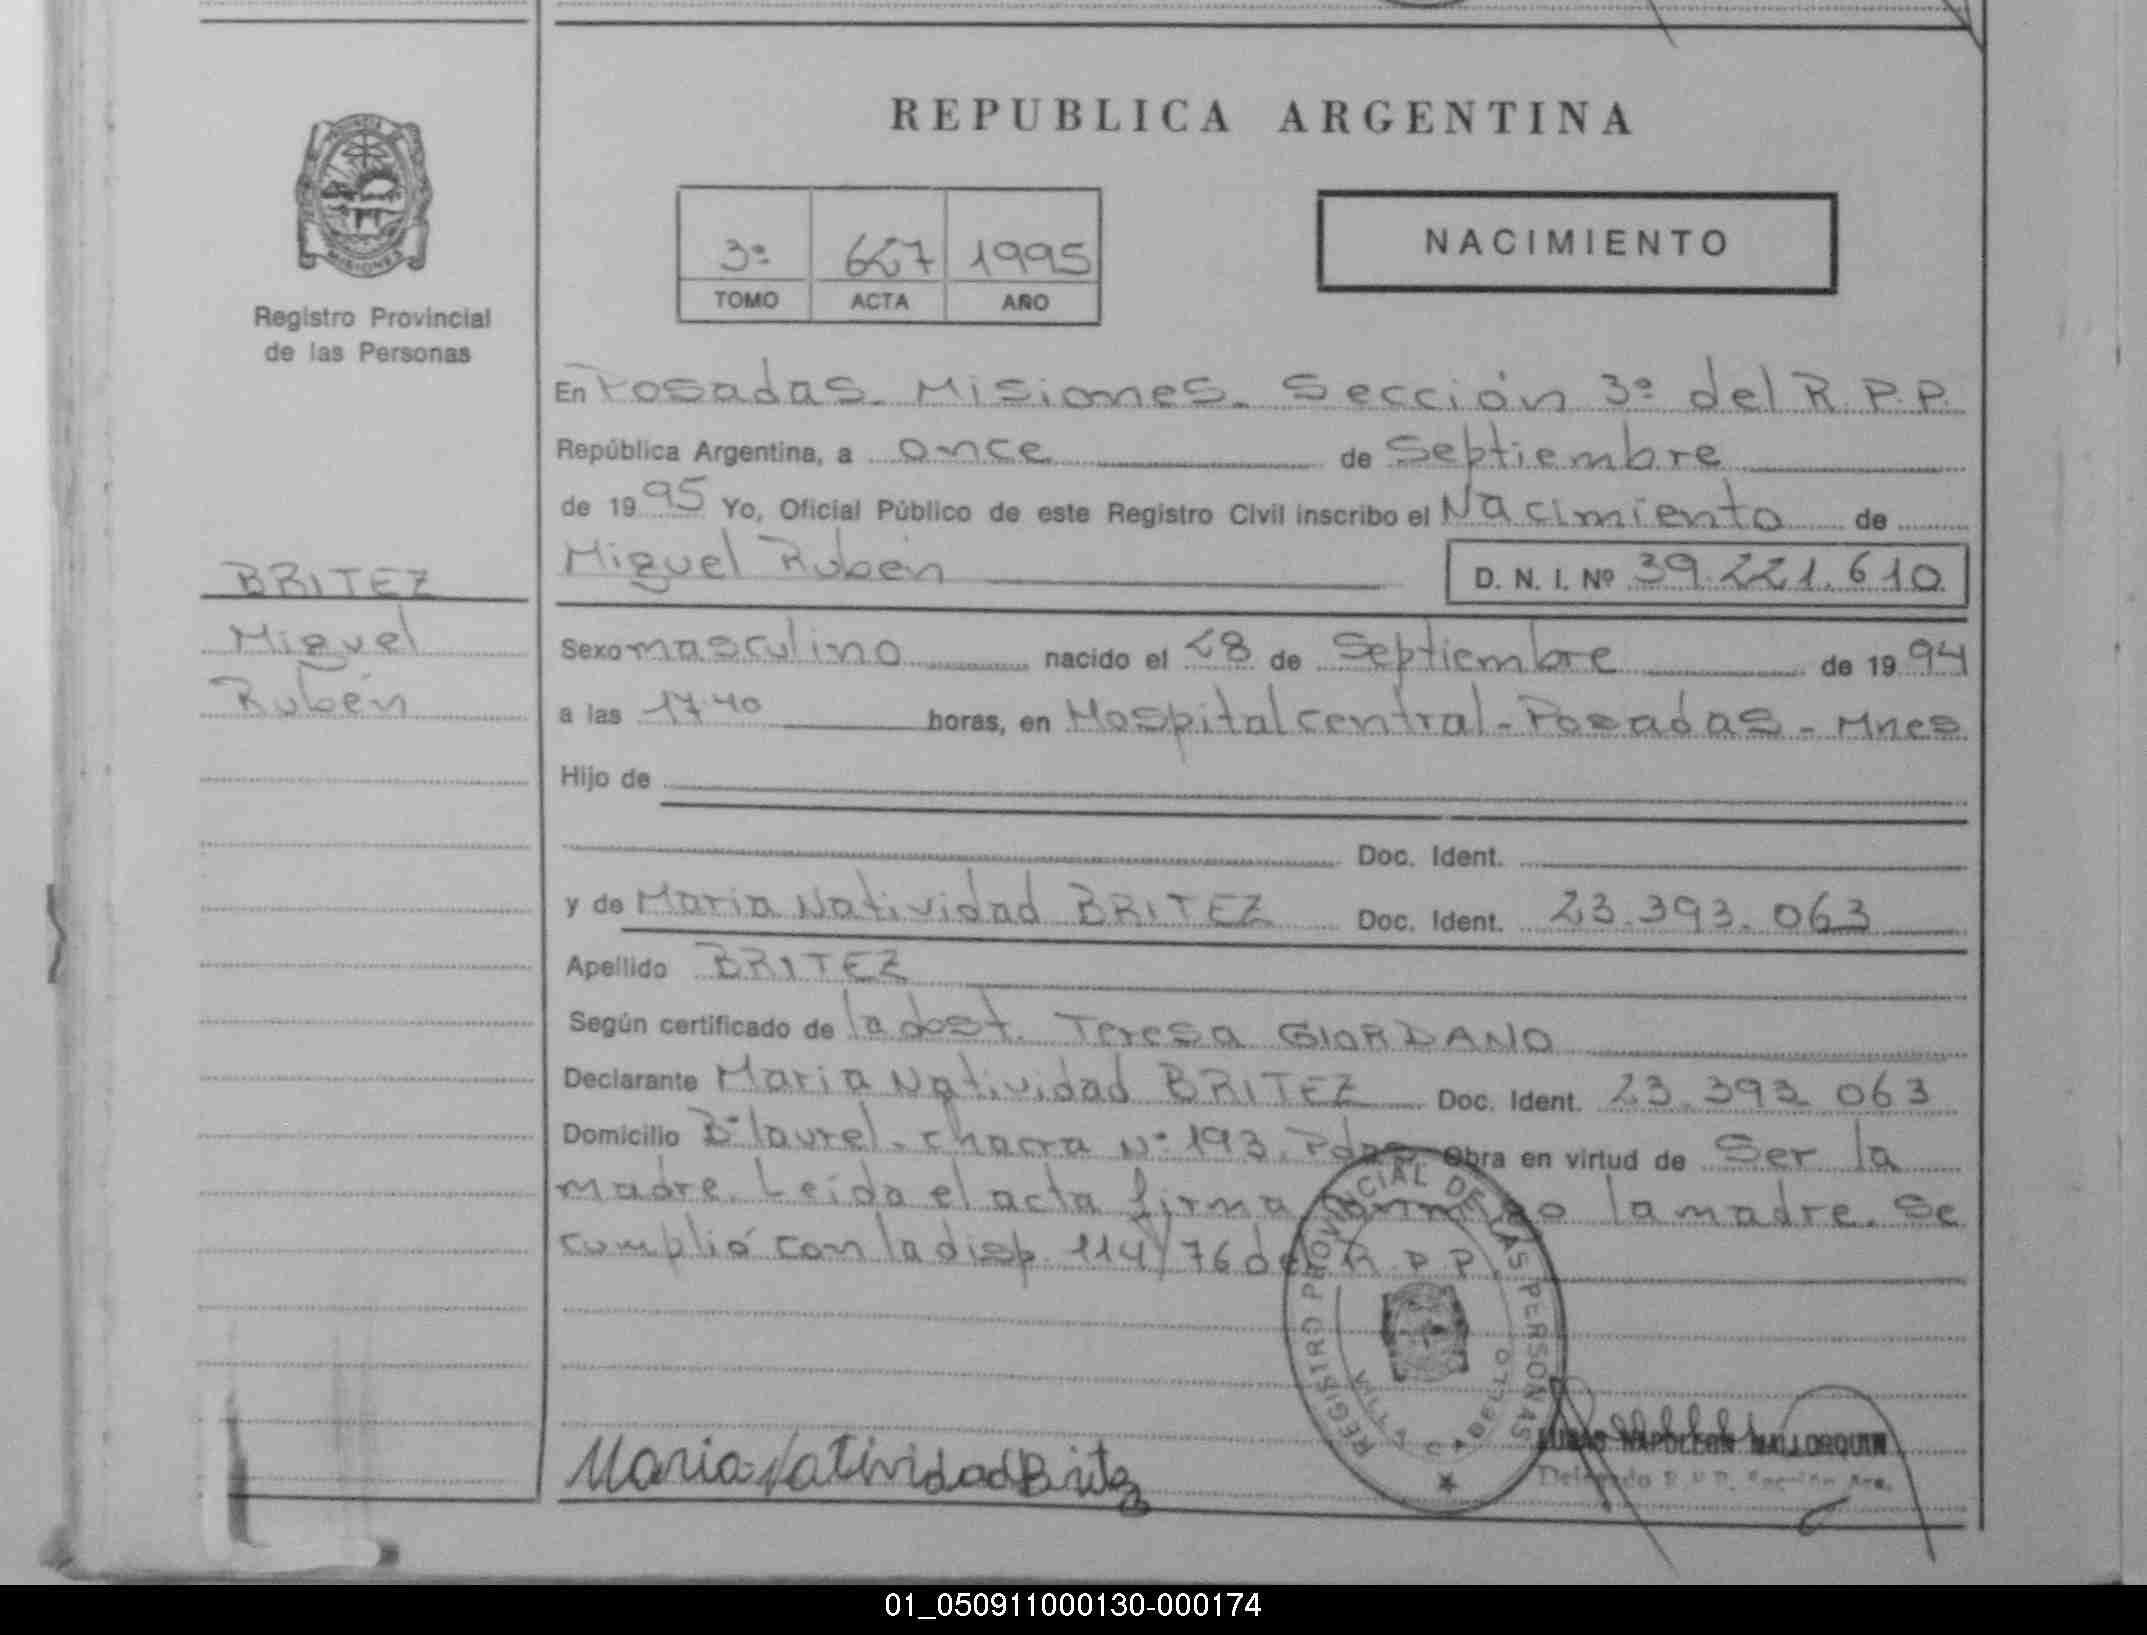 REPUBLICA ARGENTINA
PROVINCIA DE MISIONES
Registro Provincial
de las Personas
3º 627 1995
TOMO ACTA AÑO
NACIMIENTO
En Posadas. Misiones. Sección 3º del R.P.P.
República Argentina, a once de Septiembre
de 1995 Yo, Oficial Público de este Registro Civil inscribo el Nacimiento de
Miguel Rubén D. N. I. Nº 39.221.610
BRITEZ
Miguel
Rubén
Sexo masculino nacido el 28 de Septiembre de 1994
a las 17 40 horas, en Hospital central - Posadas - Mnes
Hijo de
Doc. Ident.
y de Maria Natividad BRITEZ Doc. Ident. 23.393.063
Apellido BRITEZ
Según certificado de la obst. Teresa GIORDANO
Declarante Maria Natividad BRITEZ Doc. Ident. 23.393.063
Domicilio Bº laurel - chacra Nº 193. Pdas Obra en virtud de Ser la
madre. Leída el acta firma conmigo la madre. Se
cumplió con la disp. 114/76 del R.P.P.
REGISTRO PROVINCIAL DE LAS PERSONAS
VILLA CABELLO
Maria Natividad Britez
NAPOLEON
Delegado R.P.P. Sección 3ra.
01_050911000130-000174